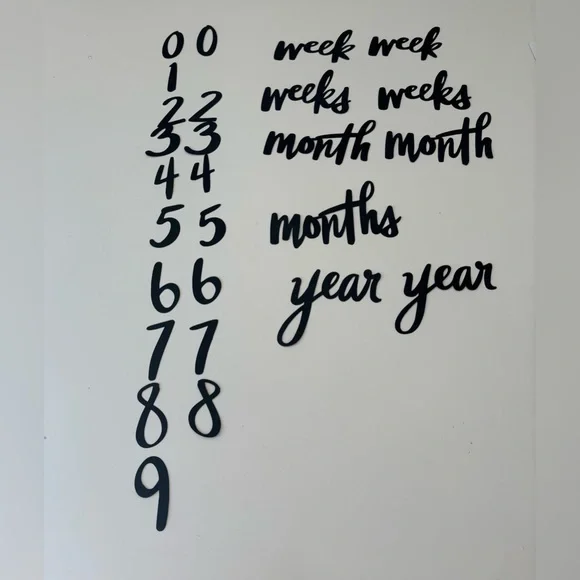 0 0 week week
1
2 2 weeks weeks
3 3 month month
4 4
5 5 months
6 6 year year
7 7
8 8
9